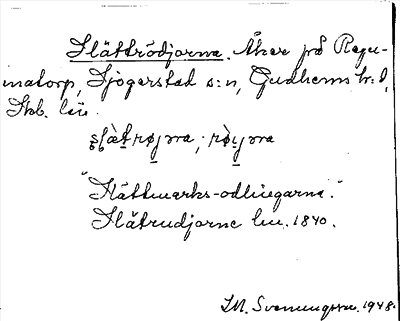 Slättrödjorna. Åker på Regu-
matorp, Sjogerstad s:n, Gudhems h:d,
Skb. län.
"Slättmarks-odlingarna."
Slätrudjorne lm. 1840.
S.M. Svenungsson. 1948.